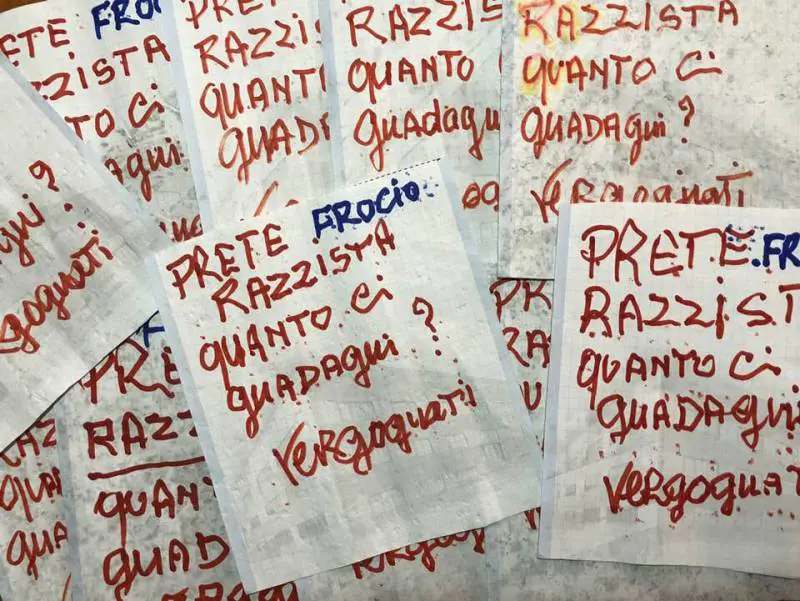 PRETE FROCIO
RAZZISTA
TO CI
agni
PRE
RAZZIS
QUANT
GUADA
RAZZIS
QUANTO
GUADAGN
RAZZISTA
QUANTO CI
GUADAGNI ?
VERGOGNATI
gni ?
gognati
PRETE FROCIO
RAZZISTA
QUANTO CI
GUADAGNI ?
VERGOGNATI
PRETE FR
RAZZIST
QUANTO CI
GUADAGNI
VERGOGNAT
PRE
RAZZ
QUANT
GUAD
RAZ
QUA
GUA
PR
RA